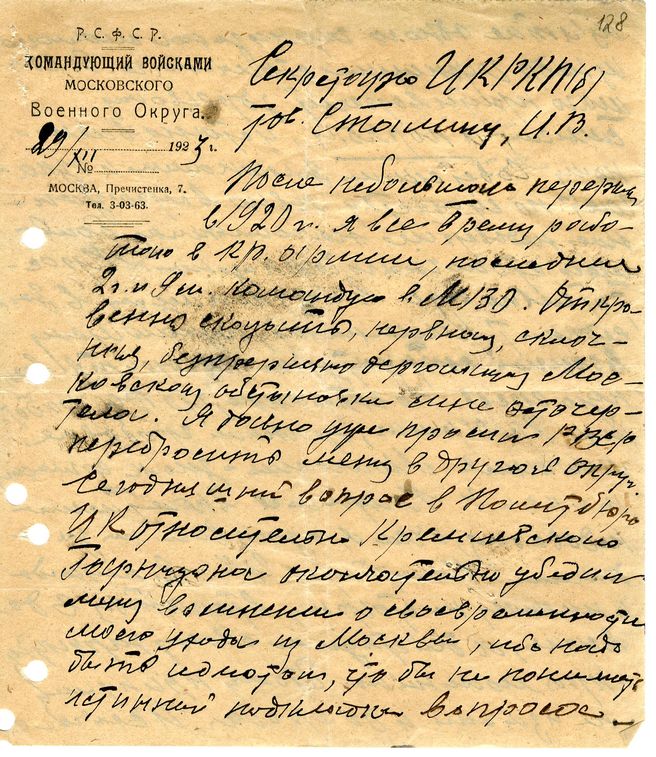 128
Р. С. Ф. С. Р.
КОМАНДУЮЩИЙ ВОЙСКАМИ
МОСКОВСКОГО
Военного Округа.
29/XII 1923 г.
№
МОСКВА, Пречистенка, 7.
Тел. 3-03-63.
Секретарю ЦКРКП(б)
тов. Сталину, И.В.
После небольшого перерыва
в 1920 г. я все время рабо-
таю в кр. армии, последние
2 г. и 9 м. командую в МВО. Откро-
венно сказать, нервная, склоч-
ная, безпрерывно дергающая Мос-
ковская обстановка мне оточер-
тела. Я давно уже просил РВСР
перебросить меня в другой округ.
Сегодняшний вопрос в Политбюро
ЦК относительно Кремлевского
Гарнизона окончательно убедил
меня в мнении о своевременности
моего ухода из Москвы, ибо надо
быть идиотом, что бы не понимать
истинной подкладки вопроса